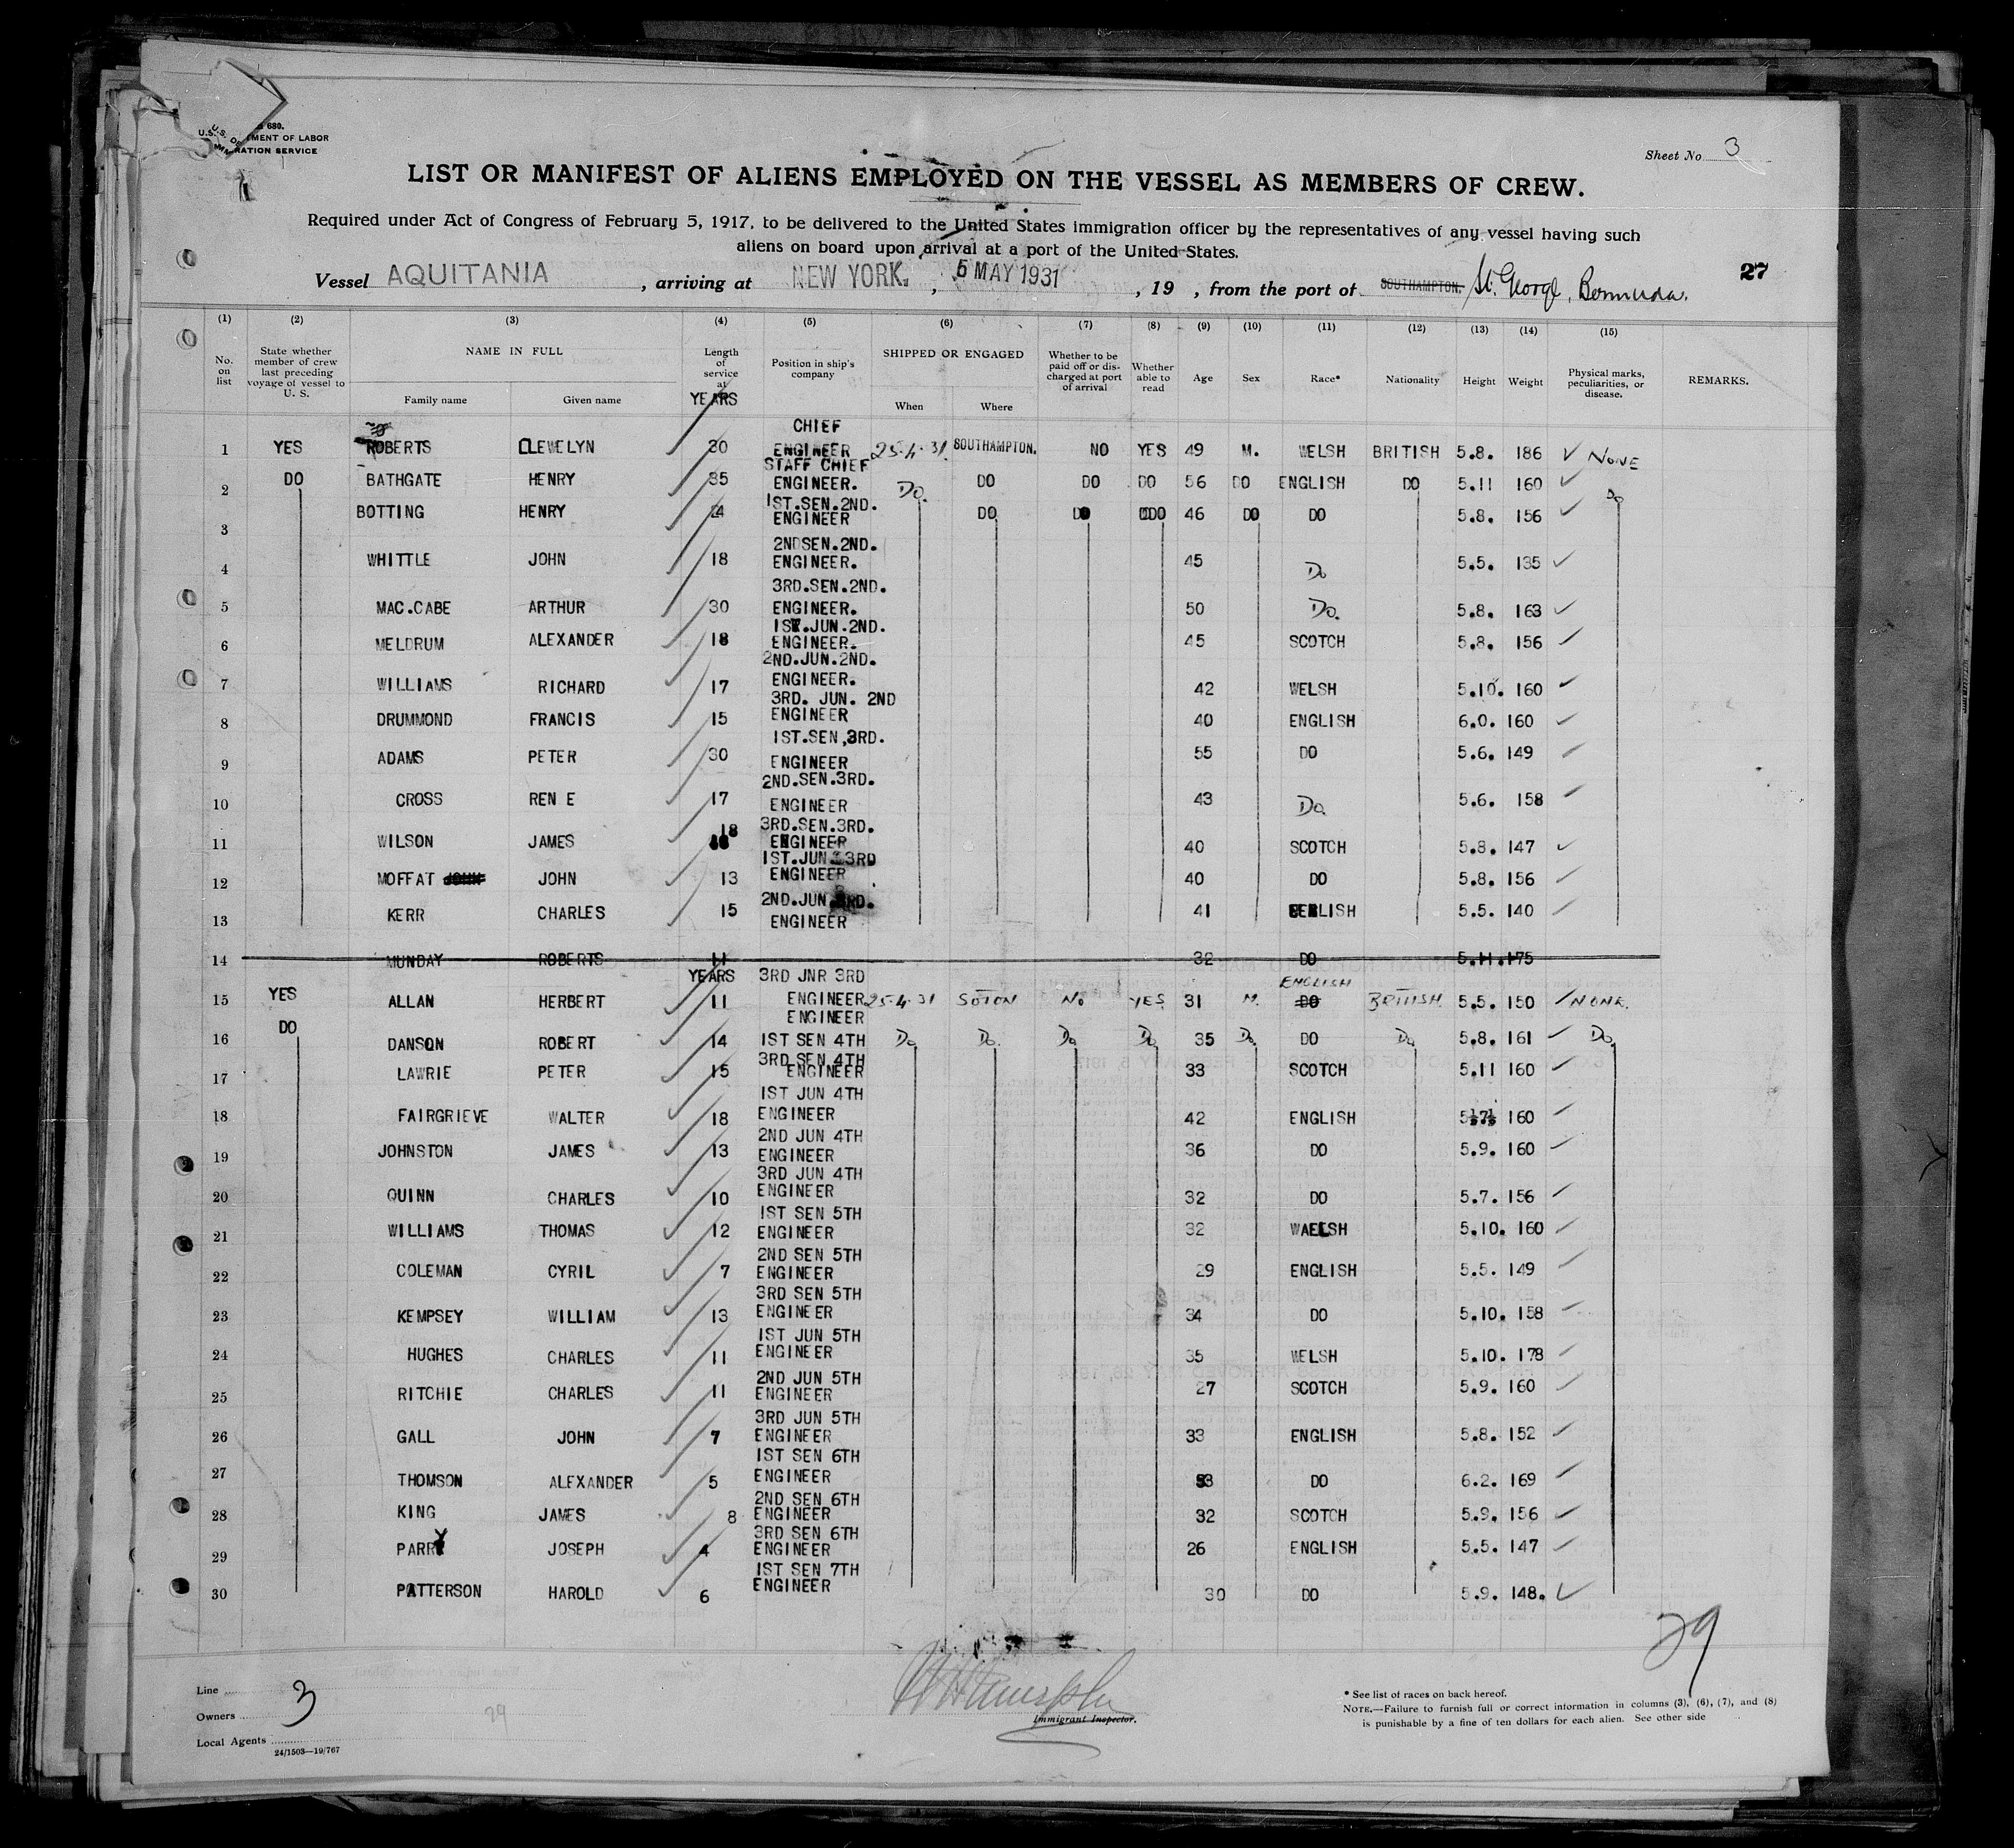 680.
U.S. DE MENT OF LABOR
RATION SERVICE
Sheet No 3
LIST OR MANIFEST OF ALIENS EMPLOYED ON THE VESSEL AS MEMBERS OF CREW.
Required under Act of Congress of February 5, 1917, to be delivered to the United States immigration officer by the representatives of any vessel having such
aliens on board upon arrival at a port of the United States.
Vessel AQUITANIA, arriving at NEW YORK., 5 MAY 1931, 19 , from the port of SOUTHAMPTON. St. George, Bermuda. 27
(1) (2) (3) (4) (5) (6) (7) (8) (9) (10) (11) (12) (13) (14) (15)
No. on list State whether member of crew last preceding voyage of vessel to U. S. NAME IN FULL Family name Given name Length of service at YEARS Position in ship's company SHIPPED OR ENGAGED When Where Whether to be paid off or discharged at port of arrival Whether able to read Age Sex Race* Nationality Height Weight Physical marks, peculiarities, or disease. REMARKS.
1 YES ROBERTS LLEWELYN 30 CHIEF ENGINEER 25-4-31. SOUTHAMPTON. NO YES 49 M. WELSH BRITISH 5.8. 186 NONE
2 DO BATHGATE HENRY 35 STAFF CHIEF ENGINEER. Do. DO DO DO 56 DO ENGLISH DO 5.11 160 Do
3 BOTTING HENRY 24 1ST.SEN.2ND. ENGINEER DO DO DO 46 DO DO 5.8. 156
4 WHITTLE JOHN 18 2NDSEN.2ND. ENGINEER. 45 Do 5.5. 135
5 MAC.CABE ARTHUR 30 3RD.SEN.2ND. ENGINEER. 50 Do. 5.8. 163
6 MELDRUM ALEXANDER 18 1ST.JUN.2ND. ENGINEER. 45 SCOTCH 5.8. 156
7 WILLIAMS RICHARD 17 2ND.JUN.2ND. ENGINEER. 42 WELSH 5.10. 160
8 DRUMMOND FRANCIS 15 3RD. JUN. 2ND ENGINEER 40 ENGLISH 6.0. 160
9 ADAMS PETER 30 1ST.SEN,3RD. ENGINEER 55 DO 5.6. 149
10 CROSS REN E 17 2ND.SEN.3RD. ENGINEER 43 Do. 5.6. 158
11 WILSON JAMES 18 3RD.SEN.3RD. ENGINEER 40 SCOTCH 5.8. 147
12 MOFFAT JOHN JOHN 13 1ST.JUN.3RD ENGINEER 40 DO 5.8. 156
13 KERR CHARLES 15 2ND.JUN.3RD. ENGINEER 41 LISH 5.5. 140
14 MUNDAY ROBERTS 11 32 DO 5.11.175
15 YES ALLAN HERBERT YEARS 11 3RD JNR 3RD ENGINEER 25-4-31 SOTON NO YES 31 M. ENGLISH DO BRITISH 5.5. 150 NONE.
16 DO DANSON ROBERT 14 ENGINEER 1ST SEN 4TH Do Do. Do Do 35 Do. DO Do 5.8. 161 Do
17 LAWRIE PETER 15 3RD SEN 4TH ENGINEER 33 SCOTCH 5.11 160
18 FAIRGRIEVE WALTER 18 1ST JUN 4TH ENGINEER 42 ENGLISH 5 7½ 160
19 JOHNSTON JAMES 13 2ND JUN 4TH ENGINEER 36 DO 5.9. 160
20 QUINN CHARLES 10 3RD JUN 4TH ENGINEER 32 DO 5.7. 156
21 WILLIAMS THOMAS 12 1ST SEN 5TH ENGINEER 32 WAELSH 5.10. 160
22 COLEMAN CYRIL 7 2ND SEN 5TH ENGINEER 29 ENGLISH 5.5. 149
23 KEMPSEY WILLIAM 13 3RD SEN 5TH ENGINEER 34 DO 5.10. 158
24 HUGHES CHARLES 11 1ST JUN 5TH ENGINEER 35 WELSH 5.10. 178
25 RITCHIE CHARLES 11 2ND JUN 5TH ENGINEER 27 SCOTCH 5.9. 160
26 GALL JOHN 7 3RD JUN 5TH ENGINEER 33 ENGLISH 5.8. 152
27 THOMSON ALEXANDER 5 1ST SEN 6TH ENGINEER DO 6.2. 169
28 KING JAMES 8 2ND SEN 6TH ENGINEER 32 SCOTCH 5.9. 156
29 PARRY JOSEPH 4 3RD SEN 6TH ENGINEER 26 ENGLISH 5.5. 147
30 PATTERSON HAROLD 6 1ST SEN 7TH ENGINEER 30 DO 5.9. 148.
29
Line
Owners 3 29
Local Agents
24/1503—19/767
Immigrant Inspector.
* See list of races on back hereof.
NOTE.—Failure to furnish full or correct information in columns (3), (6), (7), and (8)
is punishable by a fine of ten dollars for each alien. See other side